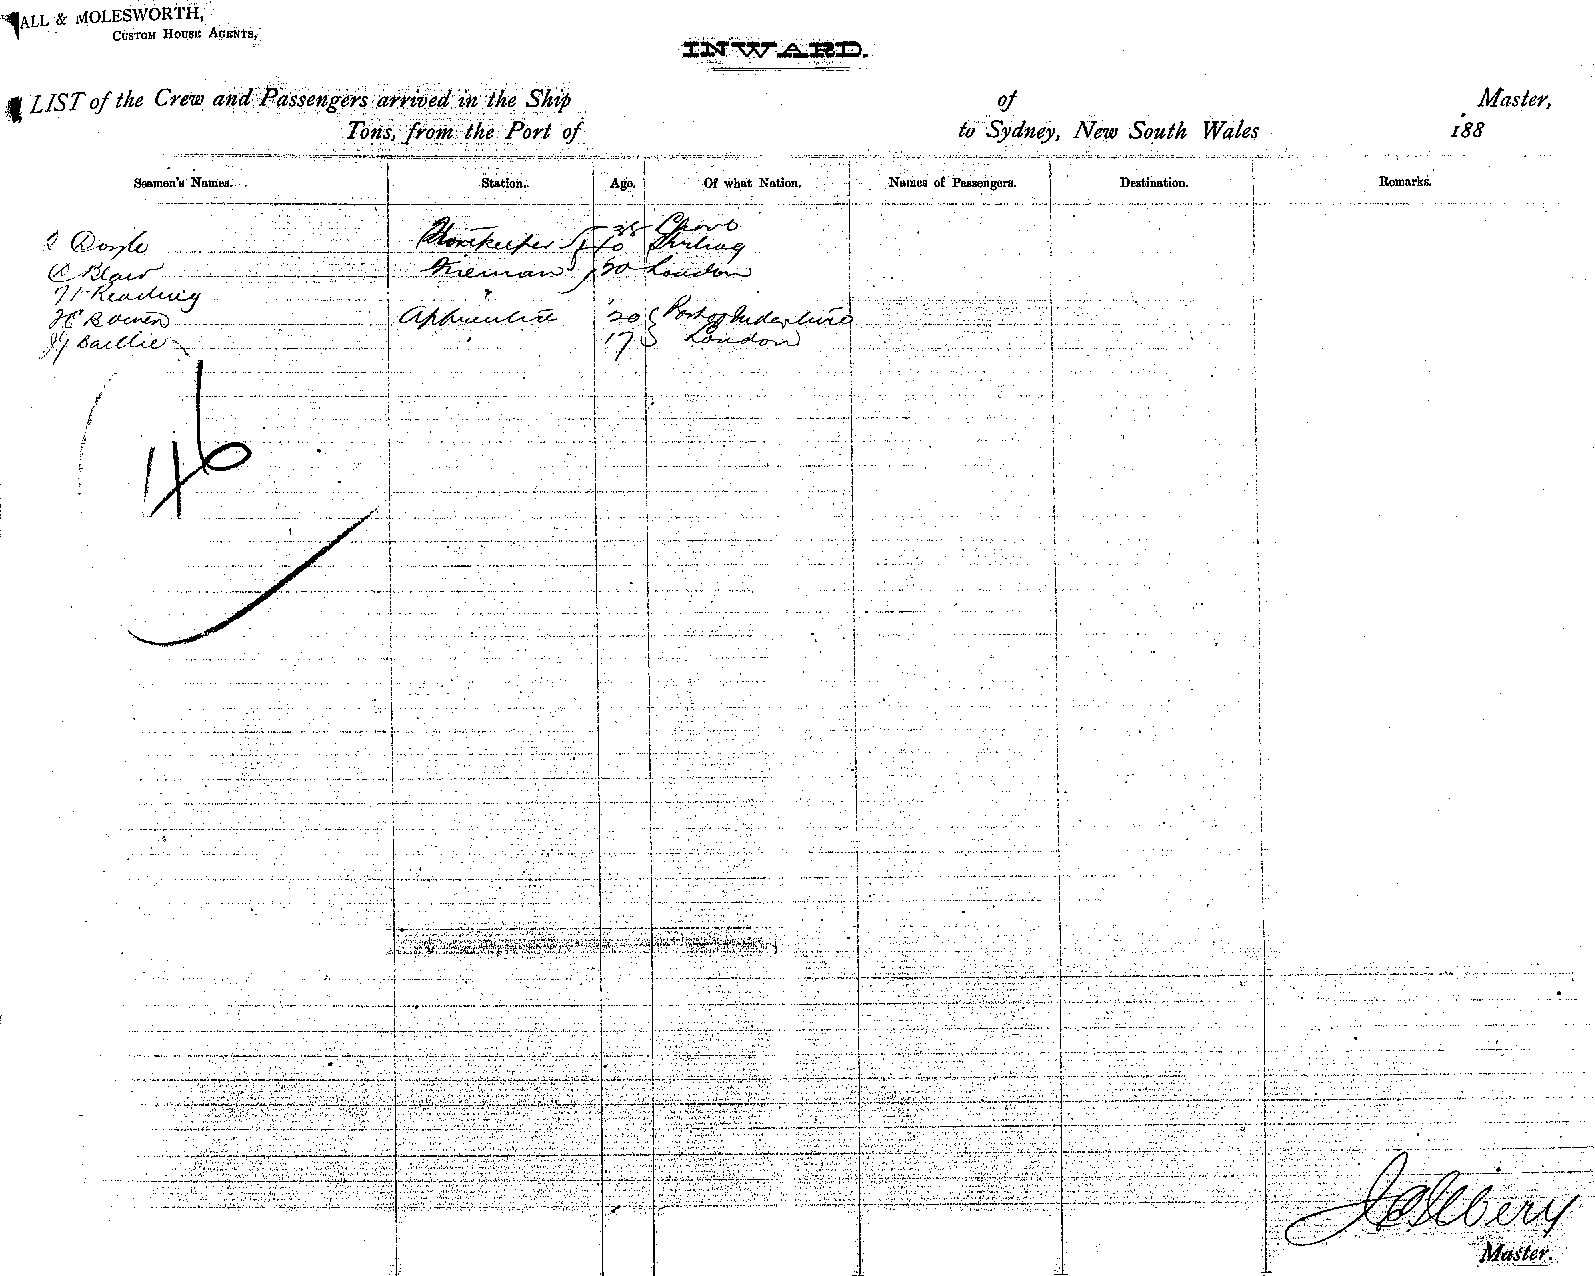 ALL & MOLESWORTH,
CUSTOM HOUSE AGENTS,
INWARD.
LIST of the Crew and Passengers arrived in the Ship of Master,
Tons, from the Port of to Sydney, New South Wales 188
Seamen's Names. Station. Age. Of what Nation. Names of Passengers. Destination. Remarks.
Doyle Storekeeper 38
C Blair 40 Stirling
H Reading Fireman 20 London
Bowen Apprentice 20
Baillie " 17 London
146
Master.